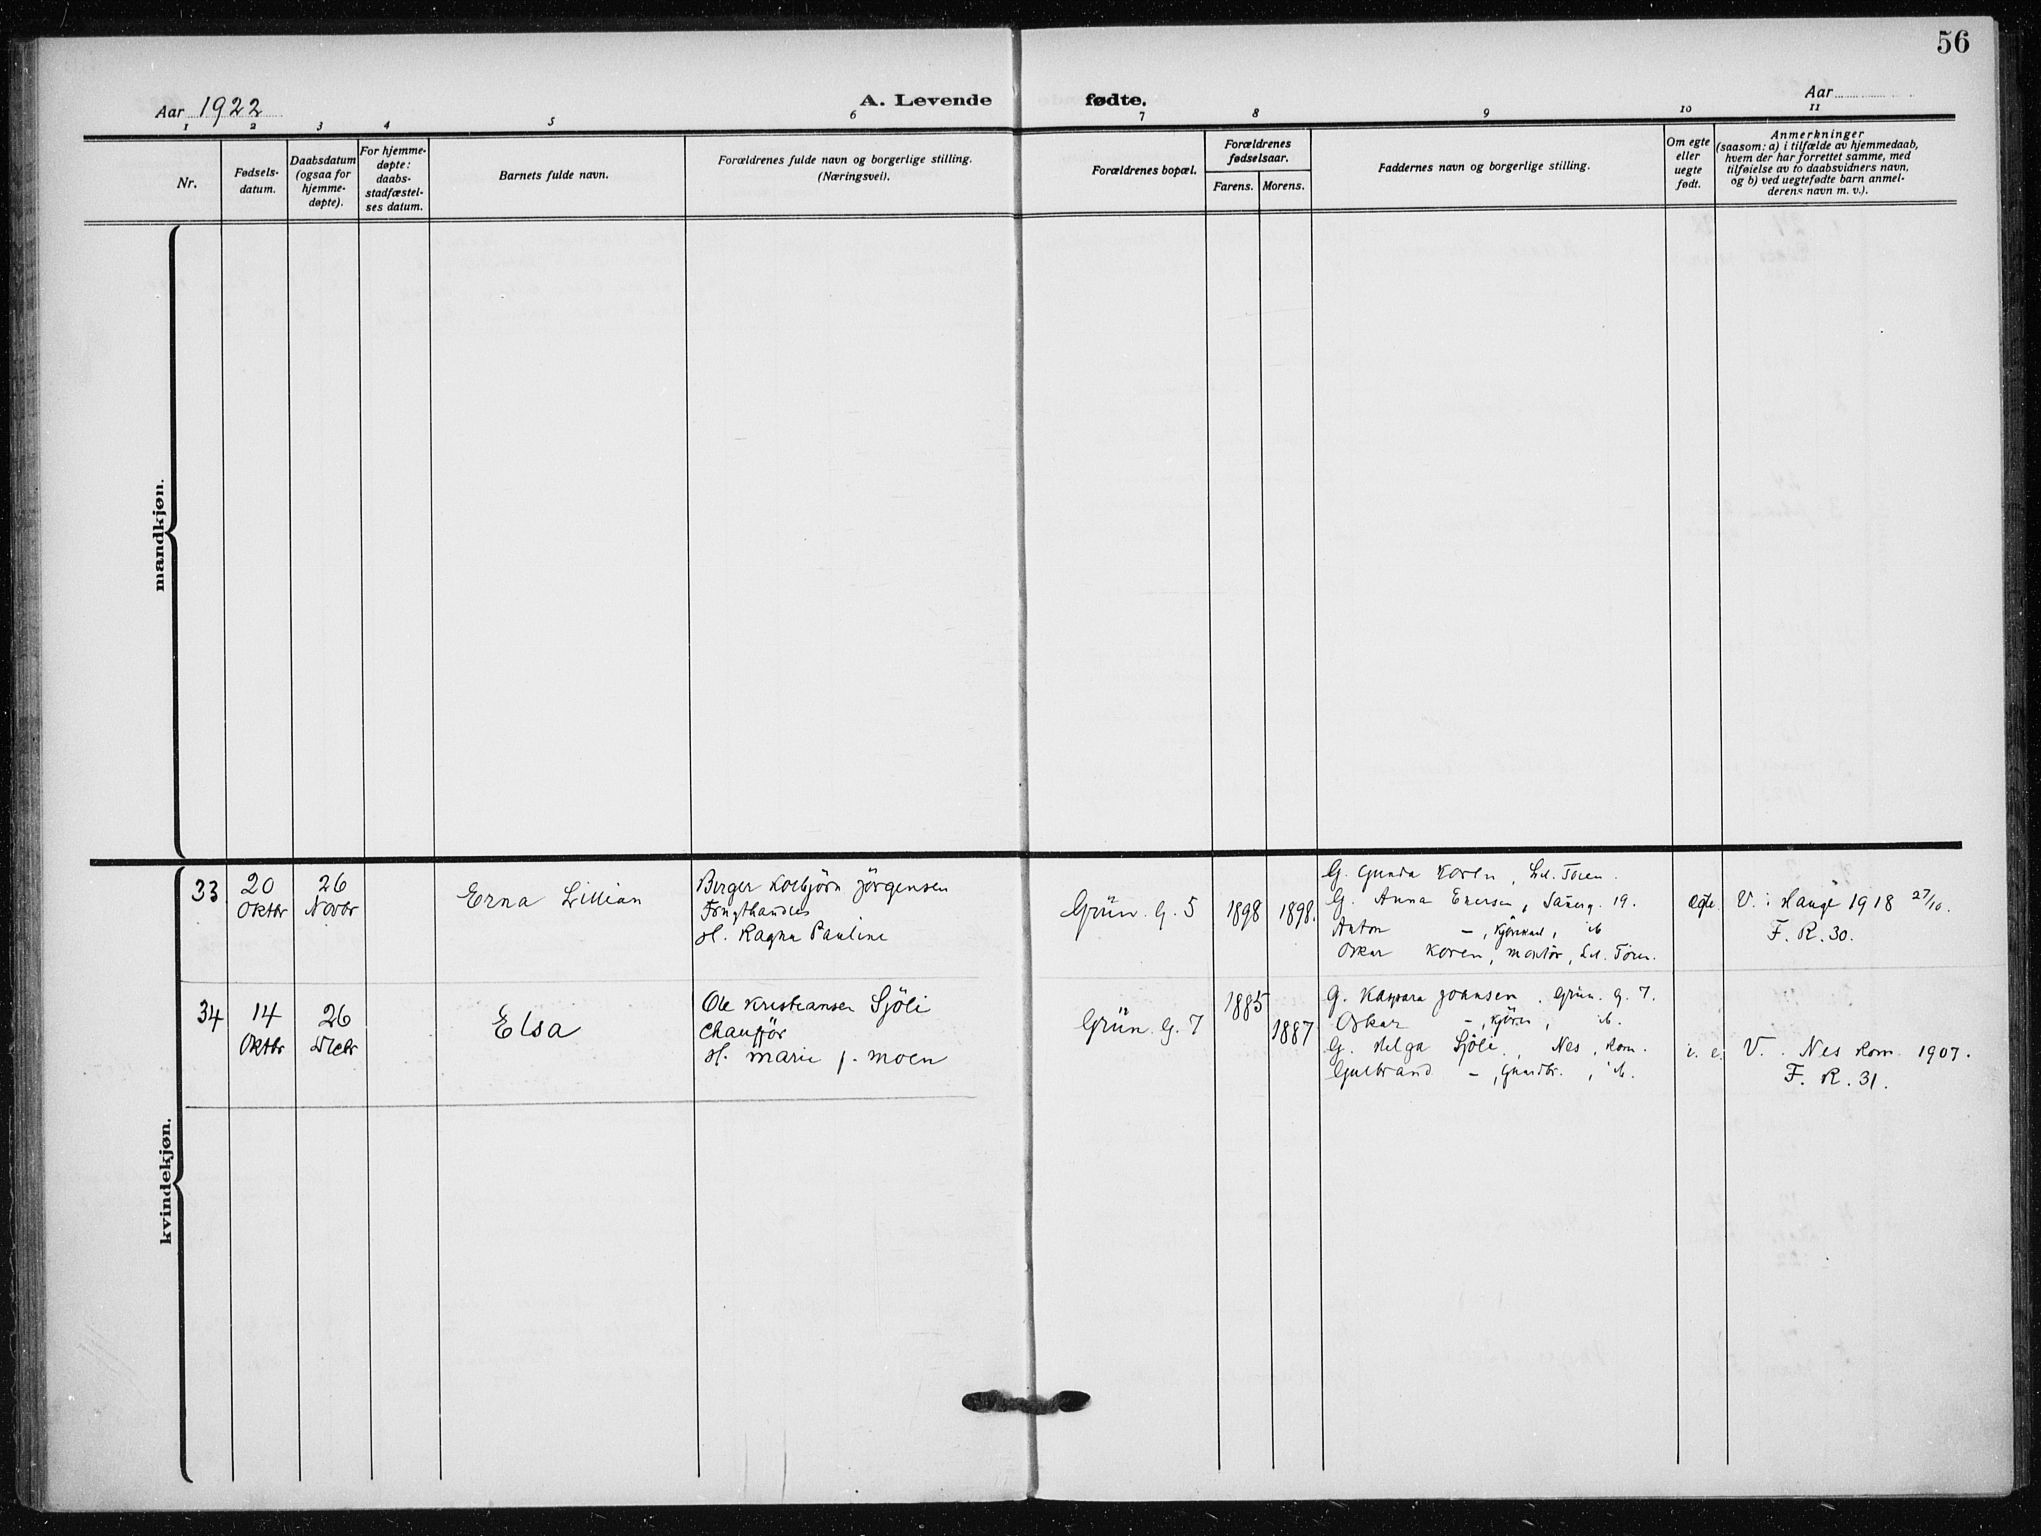 56
Aar 1922
A. Levende fødte.
Aar
1 2 3 4 5 6 7 8 9 10 11
Nr.
Fødsels-
datum.
Daabsdatum
(ogsaa for
hjemme-
døpte).
For hjemme-
døpte:
daabs-
stadfæstel-
ses datum.
Barnets fulde navn.
Forældrenes fulde navn og borgerlige stilling.
(Næringsvei).
Forældrenes bopæl.
Forældrenes
fødselsaar.
Farens. Morens.
Faddernes navn og borgerlige stilling.
Om egte
eller
uegte
født.
Anmerkninger
(saasom: a) i tilfælde av hjemmedaab,
hvem der har forrettet samme, med
tilføielse av to daabsvidners navn,
og b) ved uegtefødte barn anmel-
derens navn m. v.).
mandkjøn.
kvindekjøn.
33
20
Oktbr
26
Novbr
Erna Lillian
Berger Jörgensen
H. Ragna Pauline
Grün. g. 5
1898
1898.
G. Gunda Koren
G. Anna 19.
Anton
Oskar Koren, montör,
egte.
V. i Hauge 1918 27/10.
F. R. 30.
34
14
Oktbr
26
Elsa
Ole Kristiansen Sjöli
Chaufför
H. Marie f. Moen
Grün. g. 7
1885
1887
G. Kaspara Johnsen, Grün. g. 7.
Oskar
G. Helga Sjöli, Nes, Rom.
Gulbrand
i. e.
V. Nes Rom. 1907.
F. R. 31.